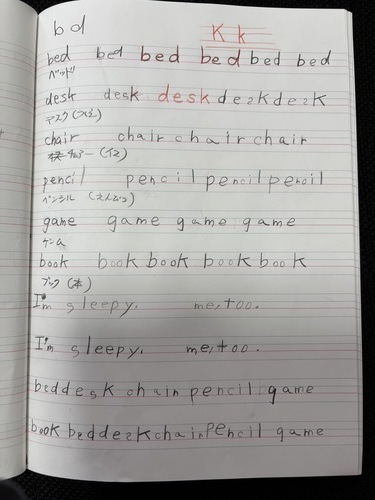 bd
K k
bed bed bed bed bed bed
ベッド
desk desk desk desk desk
デスク(つくえ)
chair chair chair chair
チェアー(イス)
pencil pencil pencil pencil
ペンシル(えんぴつ)
game game game game
ゲーム
book book book book book
ブック(本)
I'm sleepy. me, too.
I'm sleepy. me, too.
bed desk chair pencil game
book bed desk chair pencil game